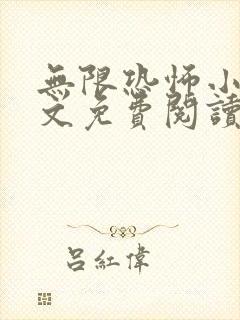 無限恐怖小
文免費閱讀
呂紅偉